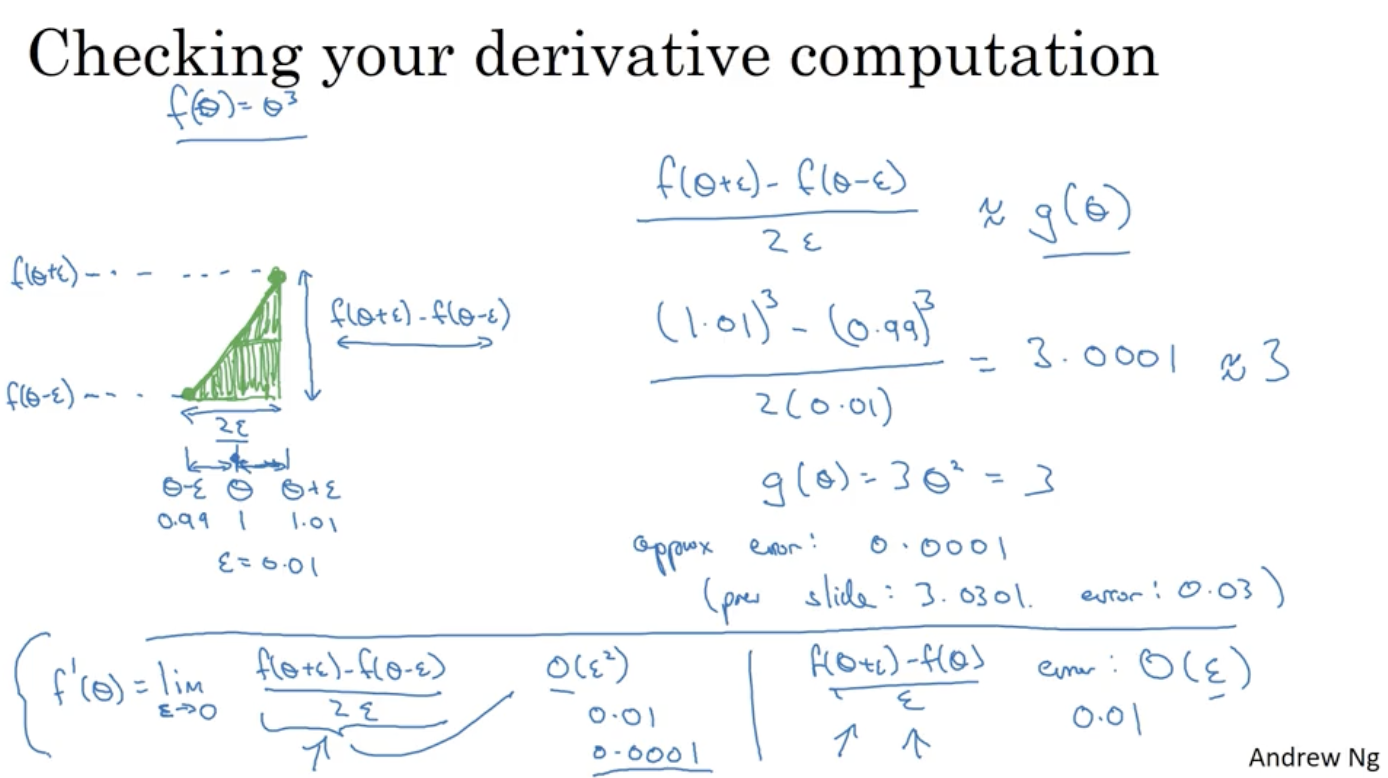 Checking your derivative computation
f(θ) = θ³
f(θ+ε) - f(θ-ε) / 2ε ≈ g(θ)
f(θ+ε)
f(θ+ε) - f(θ-ε)
f(θ-ε)
2ε
θ-ε θ θ+ε
0.99 1 1.01
ε = 0.01
(1.01)³ - (0.99)³ / 2(0.01) = 3.0001 ≈ 3
g(θ) = 3θ² = 3
approx error: 0.0001
(prev slide: 3.0301. error: 0.03)
f'(θ) = lim ε→0 f(θ+ε) - f(θ-ε) / 2ε
O(ε²)
0.01
0.0001
f(θ+ε) - f(θ) / ε error: O(ε)
0.01
Andrew Ng